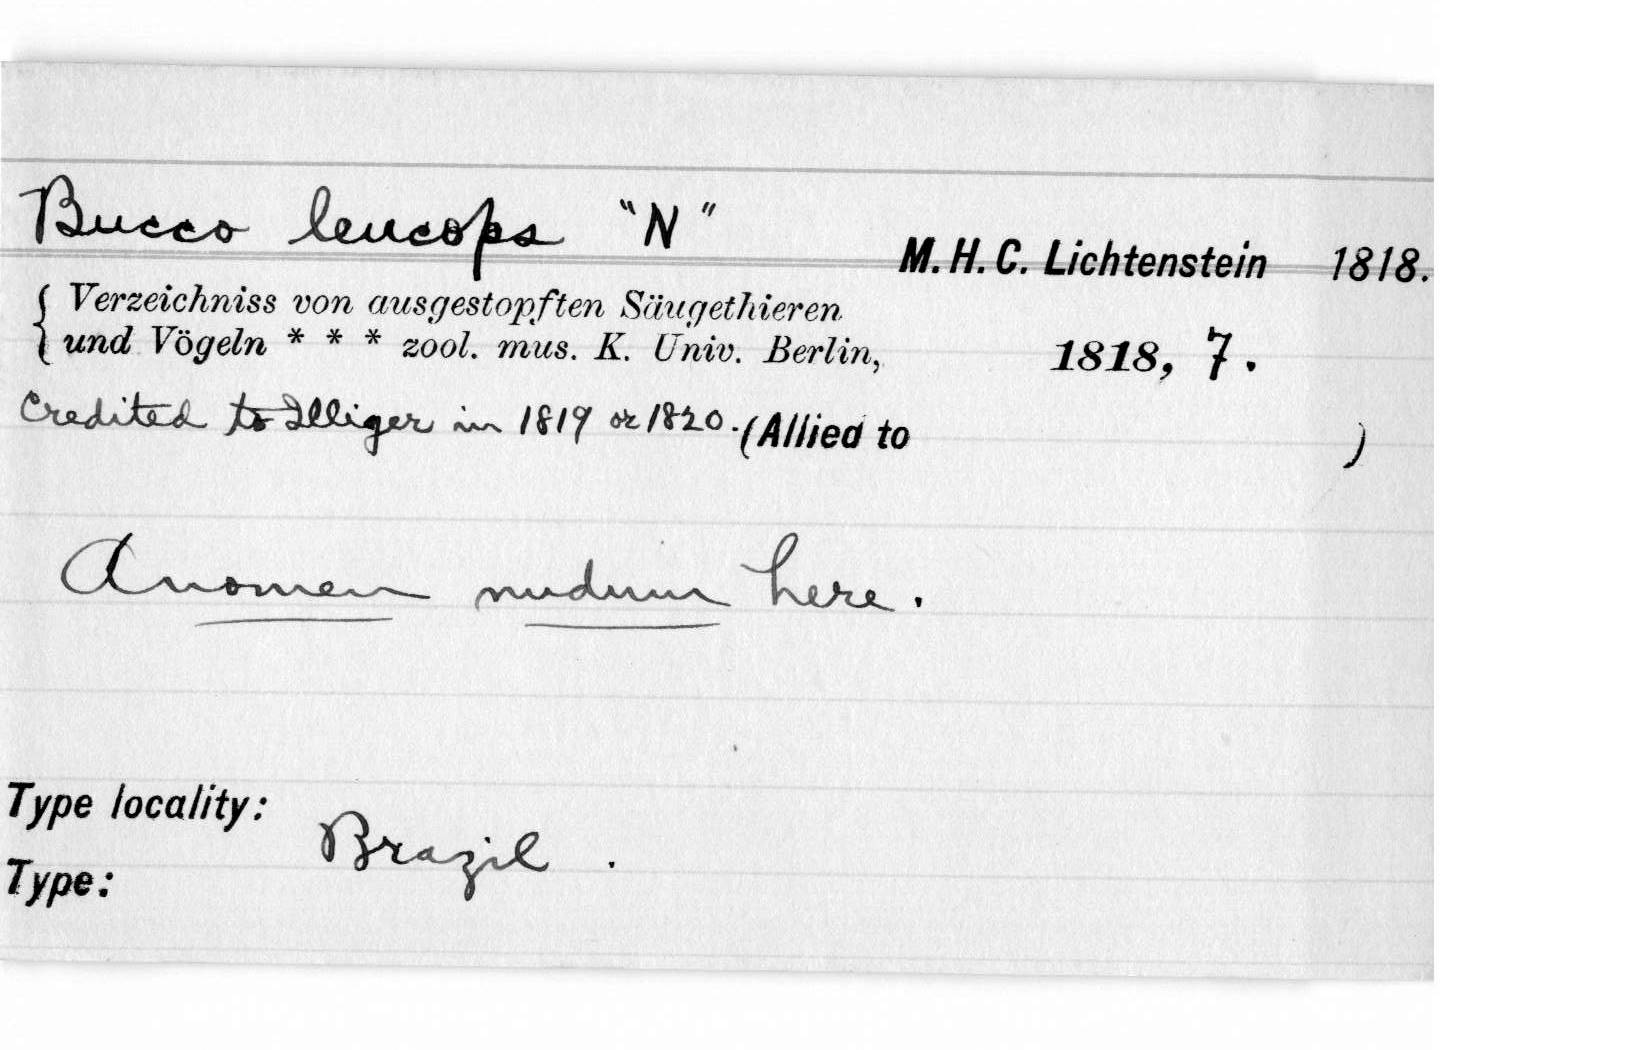 Bucco leucops "N"
M. H. C. Lichtenstein 1818.
{ Verzeichniss von ausgestopften Säugethieren
und Vögeln * * * zool. mus. K. Univ. Berlin, 1818, 7.
Credited to Illiger in 1819 or 1820. (Allied to )
A nomen nudum here.
Type locality:
Brazil.
Type: